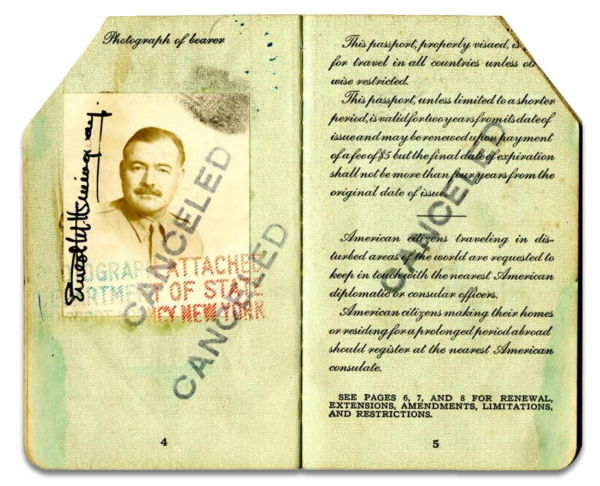 Photograph of bearer
Ernest M Hemingway.
CANCELED
CANCELED
PHOTOGRAPH ATTACHED
DEPARTMENT OF STATE
NEW YORK
4
This passport, properly visaed, is
for travel in all countries unless
wise restricted.
This passport, unless limited to a shorter
period, is valid for two years from its date of
issue and may be renewed upon payment
of a fee of $5 but the final date of expiration
shall not be more than four years from the
original date of issue.
CANCELED
American citizens traveling in dis-
turbed areas of the world are requested to
keep in touch with the nearest American
diplomatic or consular officers.
American citizens making their homes
or residing for a prolonged period abroad
should register at the nearest American
consulate.
SEE PAGES 6, 7, AND 8 FOR RENEWAL,
EXTENSIONS, AMENDMENTS, LIMITATIONS,
AND RESTRICTIONS.
5